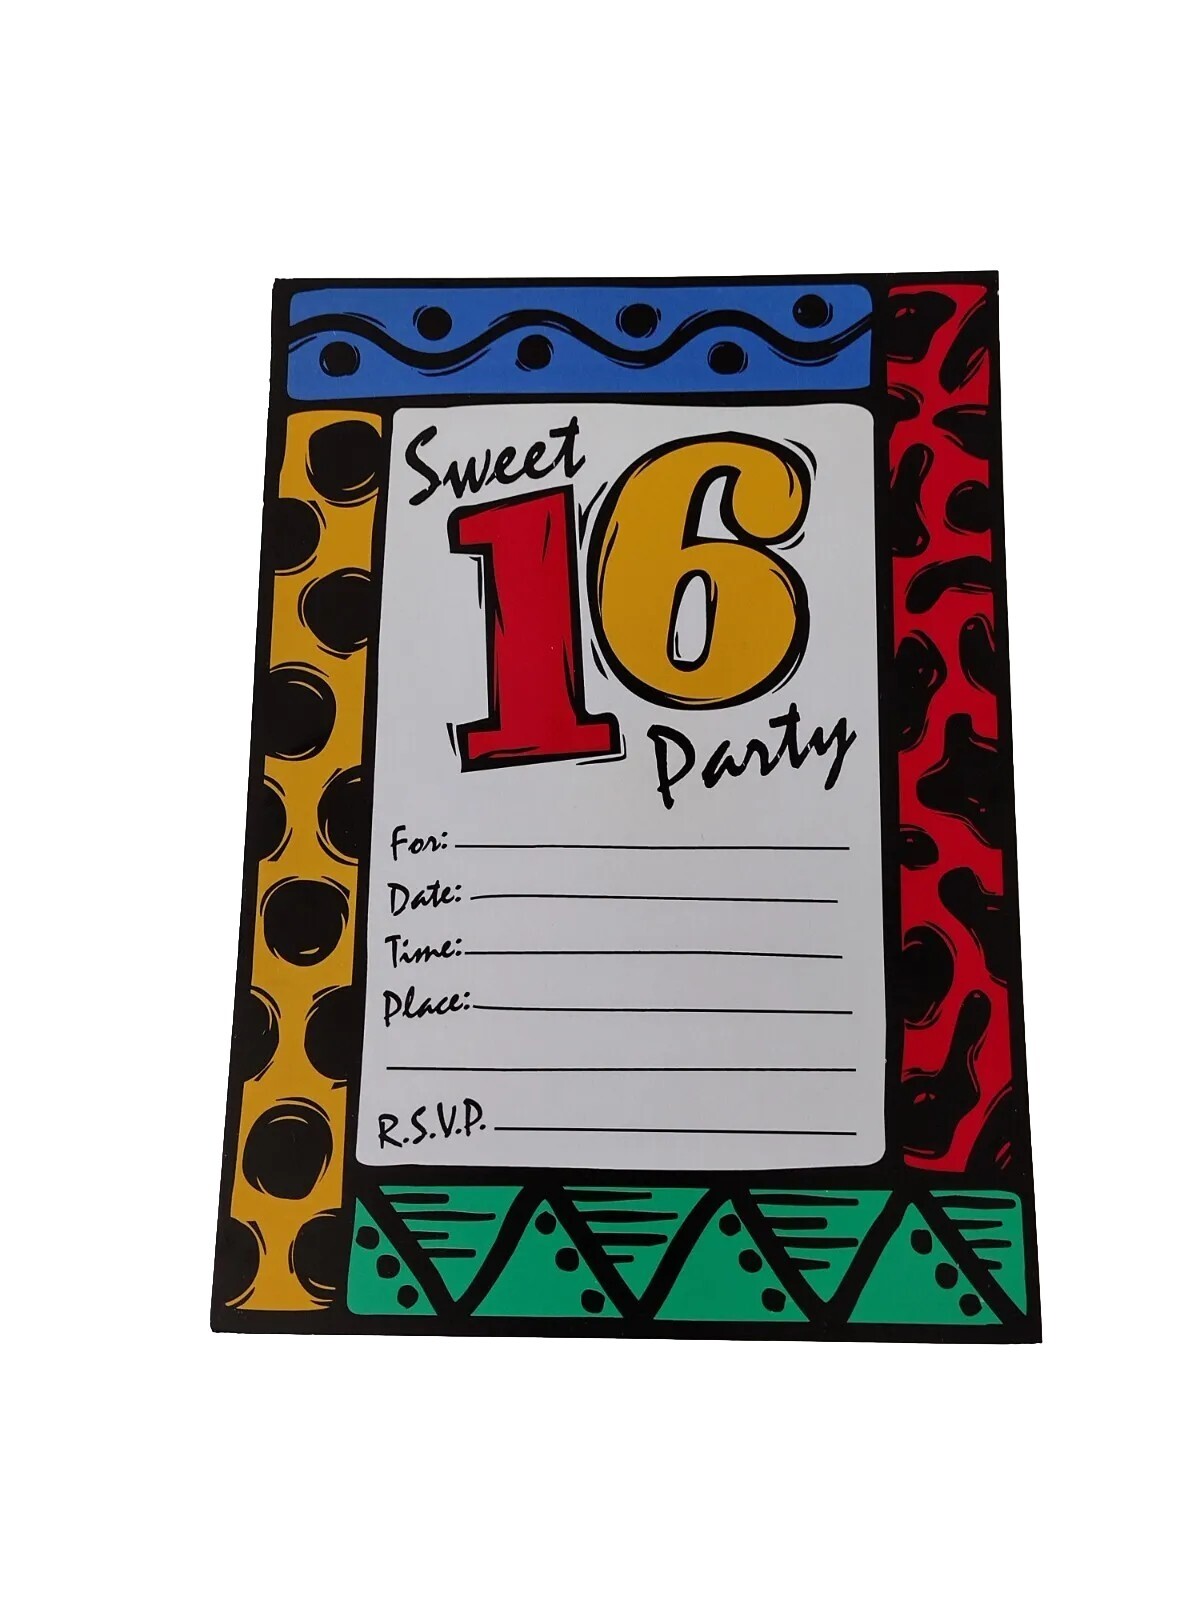 Sweet
16
Party
For:
Date:
Time:
Place:
R.S.V.P.